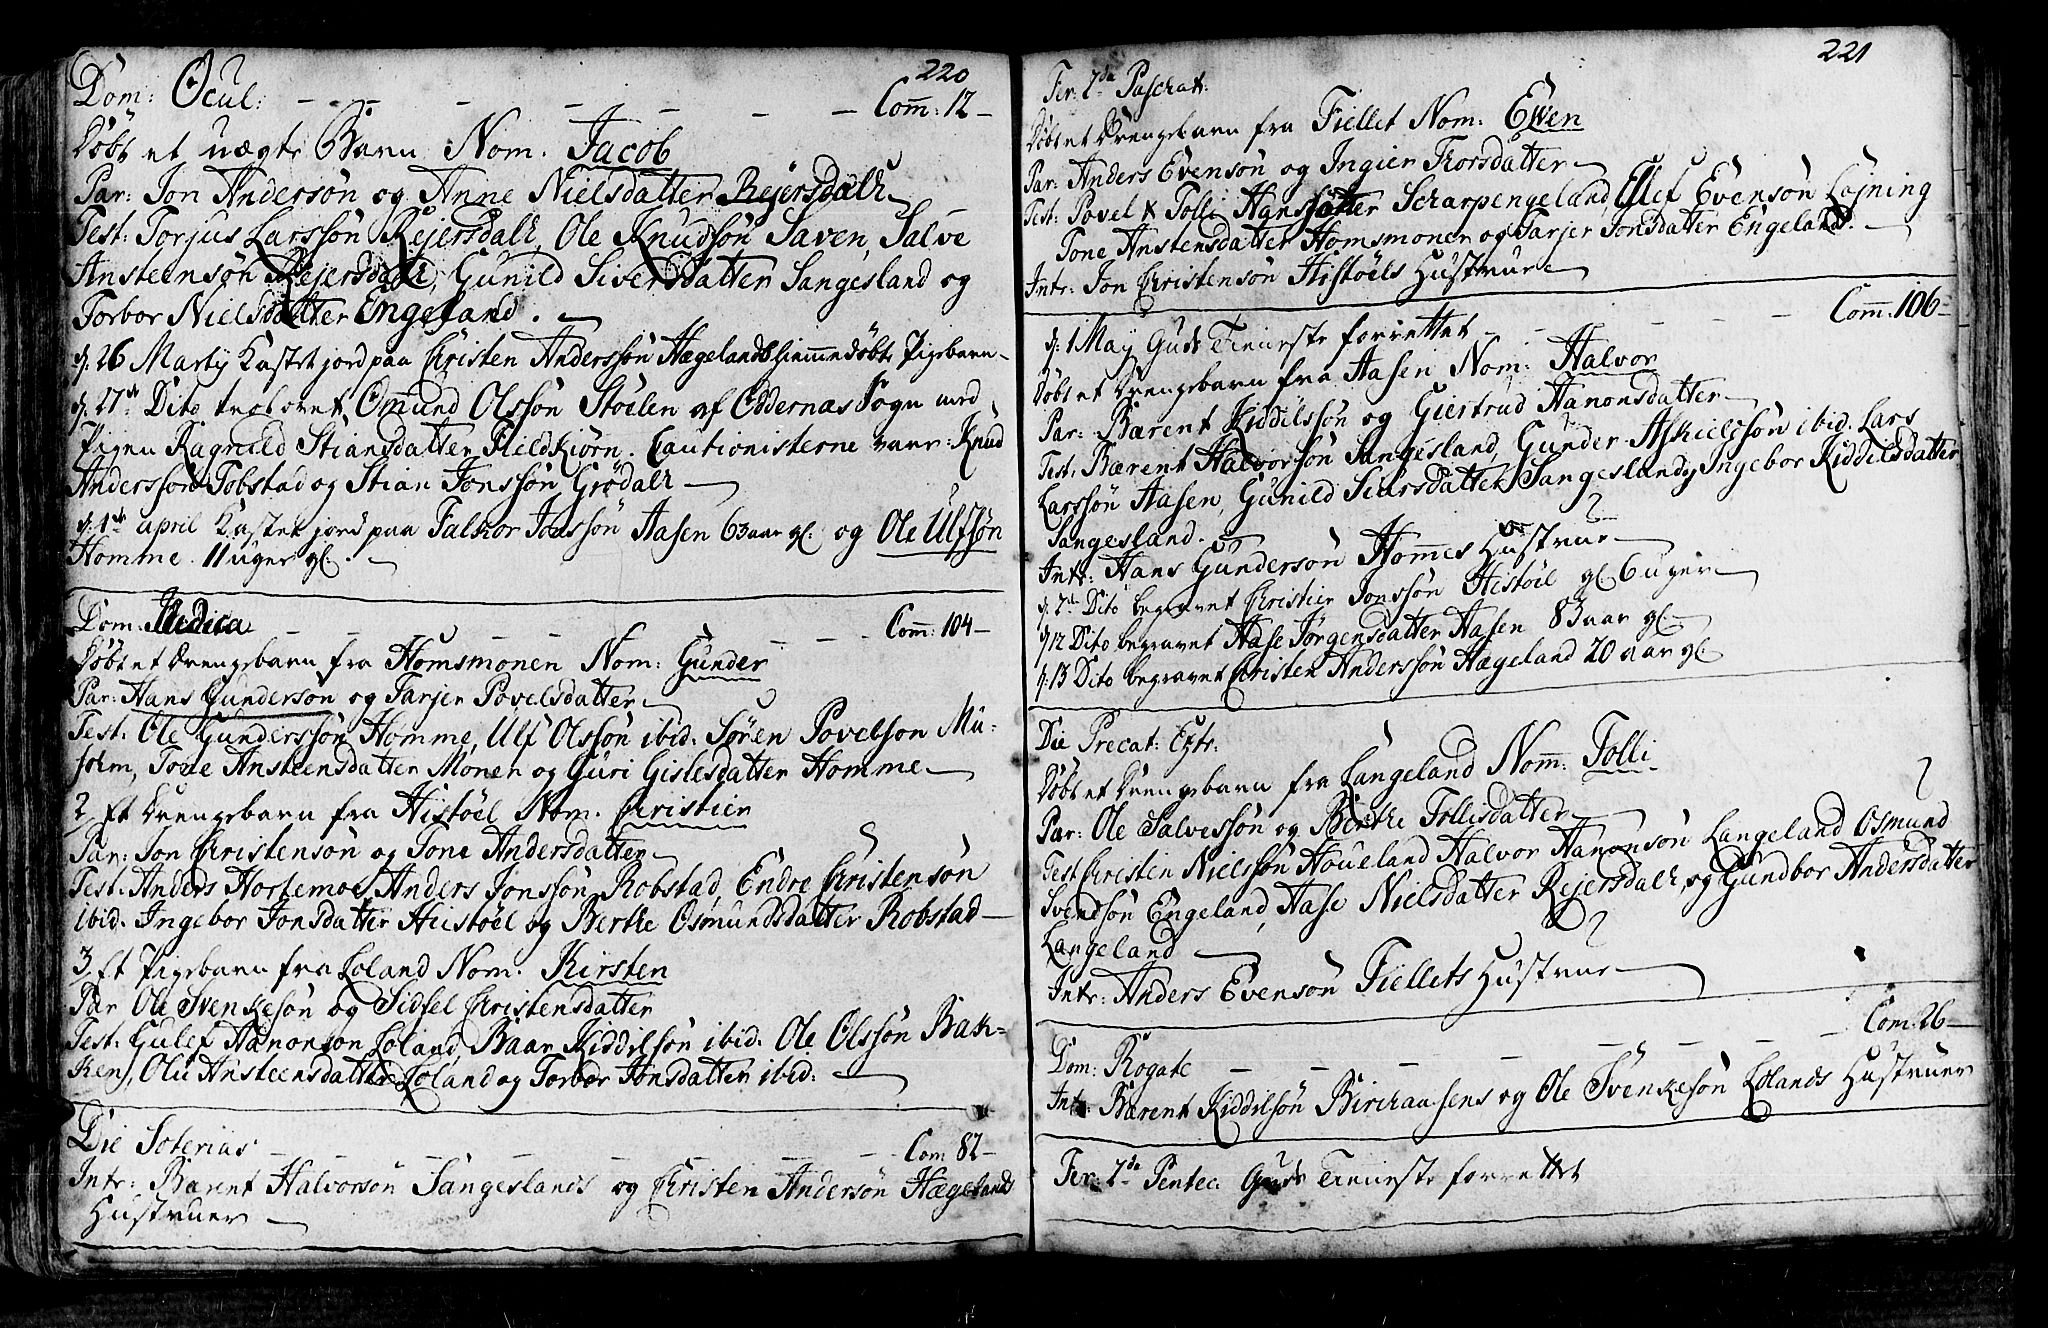 220
Dom: Ocul: — — — — — — — Com: 12 —
Døbt et uægte Barn Nom. Jacob
Par: Jon Andersøn og Anne Nielsdatter Rejersdahl
Test: Torjus Larssøn Rejersdahl, Ole Knudsøn Saven, Salve
Ansteensøn Rejersdahl, Gunild Siversdatter Sangesland og
Torbor Nielsdatter Engeland.
d. 26 Martij Kastet jord paa Christen Anderssøn Hægelands hiemmedøbte Pigebarn
d. 27de Dito trolovet Omund Olssøn Støelen af Oddernæs Sogn med
Pigen Ragnild Stiansdatter Fieldkiørn. Cautionisterne vare: Knud
Anderssøn Tobstad og Stian Jonssøn Grødalh
d. 1de April Kastet jord paa Falkor Jonssøn Aasen 63 aar gl. og Ole Ulfsøn
Homme. 11 uger gl.
Dom: Judica — — — — — — Com: 104 —
Døbt et Drengebarn fra Homsmonen Nom: Gunder
Par: Hans Gundersøn og Tarjer Povelsdatter
Test: Ole Gunderssøn Homme, Ulf Olssøn ibid. Søren Povelsøn Mu-
solm, Tone Ansteensdatter Monen og Guri Gislesdatter Homme
2, Et Drengebarn fra Histøel Nom. Christien
Par: Jon Christensøn og Tone Andersdatter
Test: Anders Hortemoe, Anders Jonssøn Robstad, Endre Christensøn
ibid. Ingebor Jonsdatter Histøel og Berthe Osmundsdatter Robstad
3, Et Pigebarn fra Loland Nom. Kirsten
Par Ole Svenkesøn og Sidsel Christensdatter
Test: Gulef Aanonsøn Loland, Baar Kiddilsøn ibid. Ole Olssøn Bak-
ken, Olu Ansteensdatter Loland og Torbor Jonsdatter ibid:
Die Soterias — — — — — — Com 82 —
Intr: Barent Halvorsøn Sangeslands og Christen Andersøn Hægelands
Hustruer
221
Fer: 2da Paschat:
Døbt et Drengebarn fra Fiellet Nom: Ewen
Par: Anders Evensøn og Ingier Thorsdatter
Test: Povel & Tolli Hanssøtter Scharpengeland, Ellef Evensøn Løjning
Tone Anstensdatter Homsmonen og Tarjer Jonsdatter Engeland.
Intr: Jon Christensøn Histøels Hustrue
Com: 106 —
d: 1 May Guds Tieneste forrettet
Døbt et Drengebarn fra Aasen Nom: Halvor
Par: Bærent Kiddilssøn og Giertrud Aanonsdatter
Test: Bærent Halvorsøn Sangesland, Gunder Askielssøn ibid. Lars
Larssøn Aasen, Gunild Siursdatter Sangesland, Ingebor Kiddilsdatter
Sangesland.
Intr: Hans Gundersøn Hommes Hustrue
d. 7de Dito begravet Christien Jonssøn Histøel gl. 6 uger
d 12 Dito begravet Aase Jørgensdatter Aasen 83 aar gl.
d. 13 Dito begravet Christen Anderssøn Hægeland 20 aar gl
Die Precat: Extr:
Døbt et Drengebarn fra Langeland Nom: Tolli
Par: Ole Salvessøn og Berthe Tollisdatter
Test Christen Nielssøn Houeland Halvor Aanonsøn Langeland Osmund
Svendsøn Engeland, Aase Nielsdatter Rejersdalh, og Gundbor Andersdatter
Langeland
Intr: Anders Evensøn Fiellets Hustrue
Com: 26 —
Dom: Rogate
Intr: Bærent Kiddilsøn Birchausens og Ole Svenkesøn Lolands Hustruer
Fer: 2da Pentec: Guds Tieneste forrettet